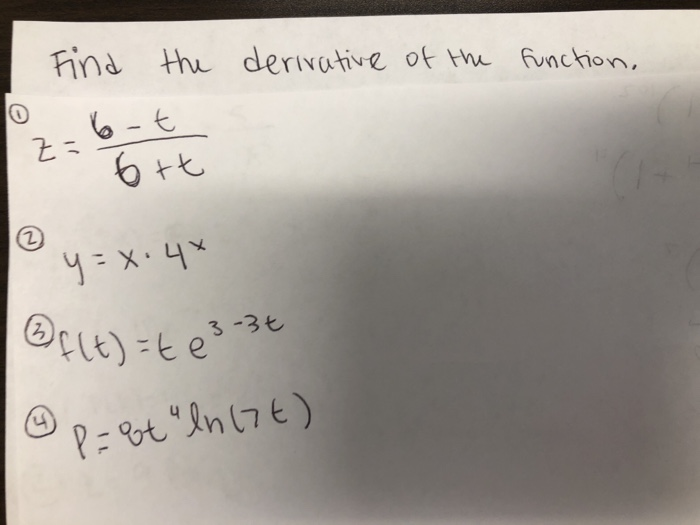 Find the derivative of the function.
① z = 6 - t / 6 + t
② y = x · 4^x
③ f(t) = t e^3-3t
④ P = 8t^4 ln(7t)